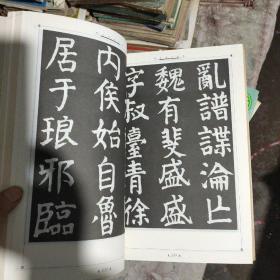 亂譜諜淪亡
魏有斐盛盛
字叔臺青徐
内侯始自魯
居于琅邪臨